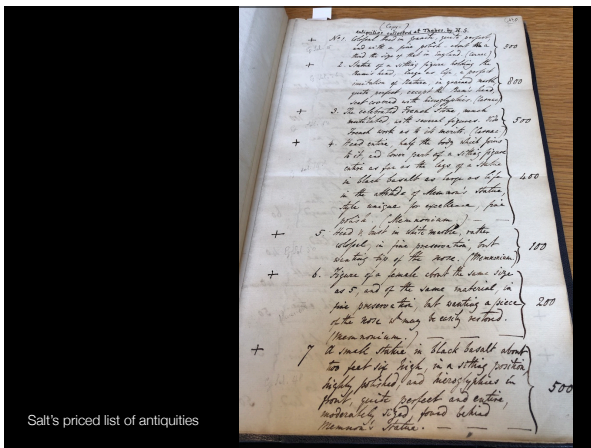 (Copy)
Antiquities collected at Thebes by H.S.
+ No 1. Colossal head in granite, quite perfect,
and with a fine polish. about
third the size of that in England (Carnac)
500
+ 2. Statue of a sitting figure holding the
Ram's head, large as life, a perfect
imitation of Nature, in grained marble
quite perfect, except the Ram's head,
seat covered with hieroglyphics. (Carnac)
800
+ 3. The celebrated French Statue, much
mutilated, with several figures. See
French work as to its merits. (Carnac)
500
+ 4. Head entire, half the body which joins
to it, and lower part of a sitting figure
entire as far as the legs of a Statue
in black basalt as large as life
in the attitude of Memnon's Statue
style unique for excellence, fine
polish. (Memnonium.)
400
+ 5. Head & bust in white marble, rather
colossal, in fine preservation, but
wanting tip of the nose. (Memnonium)
100
+ 6. Figure of a female about the same size
as 5, and of the same material, in
fine preservation, but wanting a piece
of the nose wh may be easily restored.
(Memnonium.)
200
+ 7 A small Statue, in black basalt about
two feet six high, in a sitting position,
highly polished and hieroglyphics in
front, quite perfect and entire,
moderately sized, found behind
Memnon's Statue.
500
Salt's priced list of antiquities